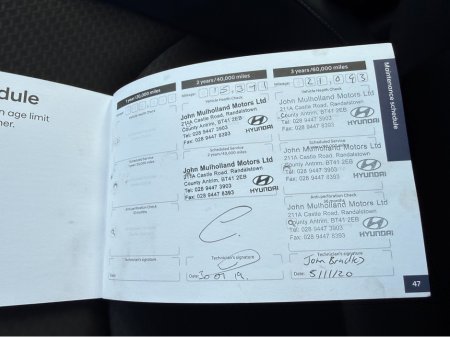 dule
n age limit
ner.
1 year/20,000 miles
Mileage:
2 years/40,000 miles
Mileage: 15,371
Vehicle Health Check
John Mulholland Motors Ltd
211A Castle Road, Randalstown
County Antrim, BT41 2EB
Tel: 028 9447 3903
Fax: 028 9447 8393
HYUNDAI
Scheduled Service
2 years/40,000 miles
John Mulholland Motors Ltd
211A Castle Road, Randalstown
County Antrim, BT41 2EB
Tel: 028 9447 3903
Fax: 028 9447 8393
HYUNDAI
Technician's signature
Date: 30 09 19
3 years/60,000 miles
Mileage: 21,093
Vehicle Health Check
John Mulholland Motors Ltd
211A Castle Road, Randalstown
County Antrim, BT41 2EB
Tel: 028 9447 3903
Fax: 028 9447 8393
HYUNDAI
Scheduled Service
John Mulholland Motors Ltd
211A Castle Road, Randalstown
County Antrim, BT41 2EB
Tel: 028 9447 3903
Fax: 028 9447 8393
HYUNDAI
Anti-perforation Check
John Mulholland Motors Ltd
211A Castle Road, Randalstown
County Antrim, BT41 2EB
Tel: 028 9447 3903
Fax: 028 9447 8393
HYUNDAI
Technician's signature
John Bradley
Date: 5/11/20
Scheduled Service
Anti-perforation Check
Technician's signature
Date:
Maintenance schedule
47